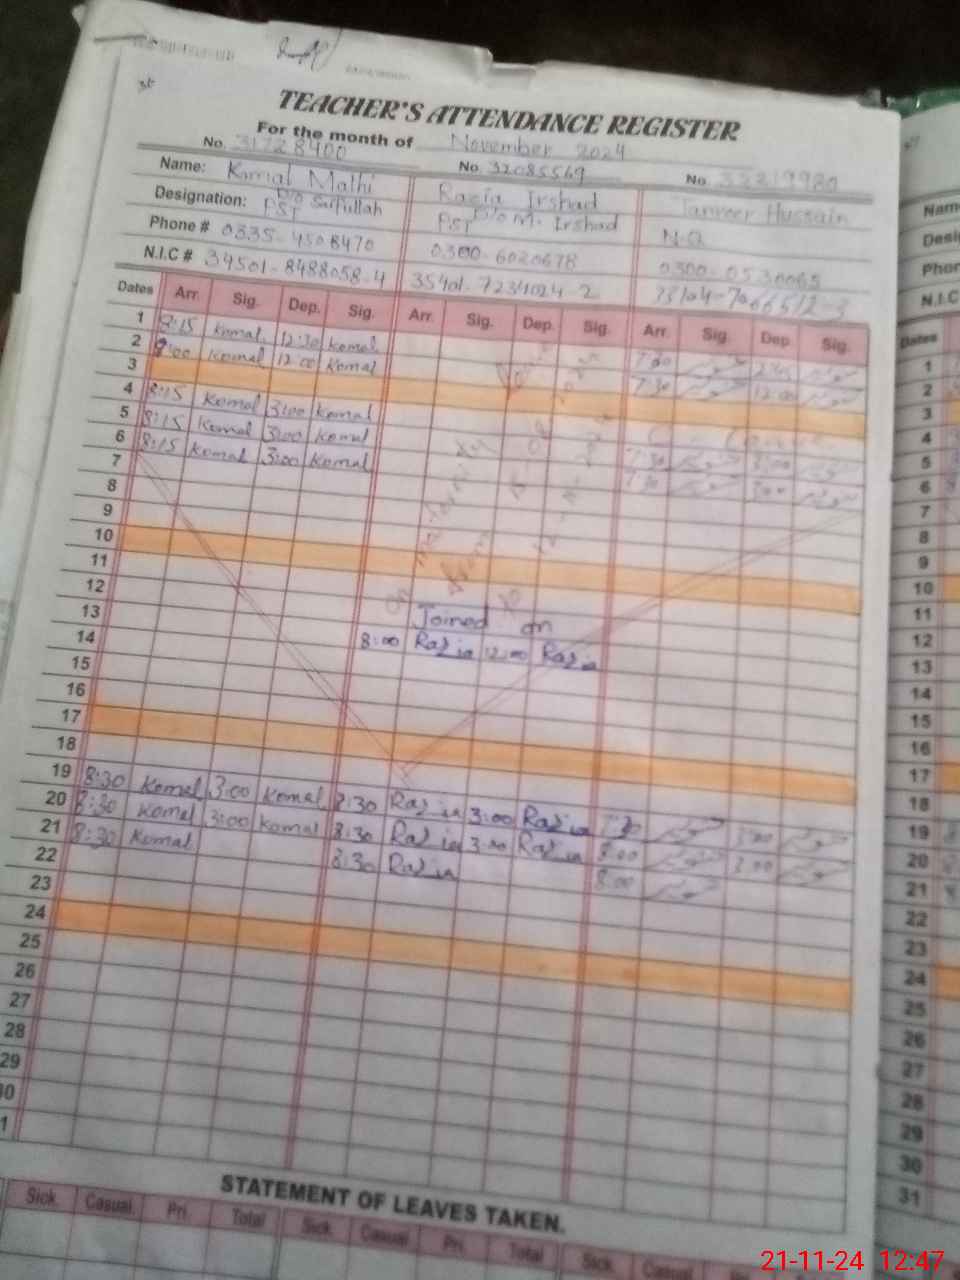 TEACHER'S ATTENDANCE REGISTER
For the month of November 2024
No. 31728400 No. 32085569 No. 32219980
Name: Komal Mathi Razia Irshad Tanveer Hussain
Designation: PST D/o Saifullah PST D/o M. Irshad N.Q
Phone # 0335-4508470 0300-6020678 0300-0530065
N.I.C # 34501-8488058-4 35401-7234024-2
Dates Arr. Sig. Dep. Sig. Arr. Sig. Dep. Sig. Arr. Sig. Dep. Sig.
1 8:15 Komal 12:30 Komal 7:30
2 8:00 Komal 12:00 Komal 7:30 12:00
3
4 8:15 Komal 3:00 Komal
5 8:15 Komal 3:00 Komal 7:30 3:00
6 8:15 Komal 3:00 Komal 7:30 3:00
7
8
9
10
11
12
13 Joined on
14 8:00 Razia 12:00 Razia
15
16
17
18
19 8:30 Komal 3:00 Komal 8:30 Razia 3:00 Razia 7:30 3:00
20 8:30 Komal 3:00 Komal 8:30 Razia 3:00 Razia 8:00 3:00
21 8:30 Komal 8:30 Razia 8:00
22
23
24
25
26
27
28
29
30
1
STATEMENT OF LEAVES TAKEN.
Sick. Casual. Pri. Total Sick. Casual. Pri. Total Sick. Casual.
Name
Desi
Phon
N.I.C
Dates
1
2
3
4
5
6
7
8
9
10
11
12
13
14
15
16
17
18
19
20
21
22
23
24
25
26
27
28
29
30
31
21-11-24 12:47